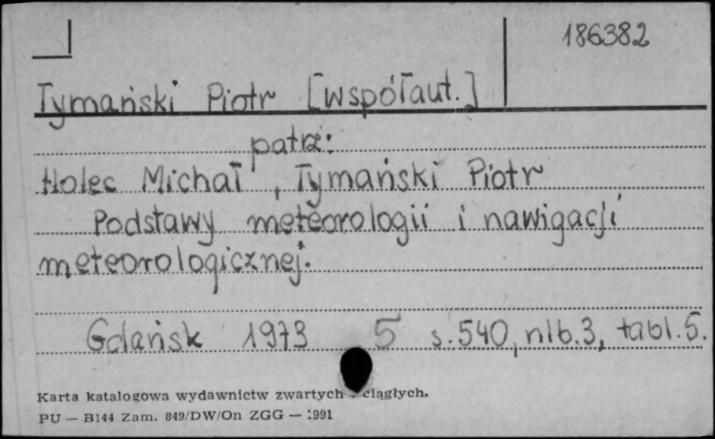 186382
Tymański Piotr [współaut.]
patrz:
Holec Michał, Tymański Piotr
Podstawy meteorologii i nawigacji
meteorologicznej.
Gdańsk 1973 5 s. 540, nlb. 3, tabl. 5.
Karta katalogowa wydawnictw zwartych ciągłych.
PU — B144 Zam. 849/DW/On ZGG — 1991